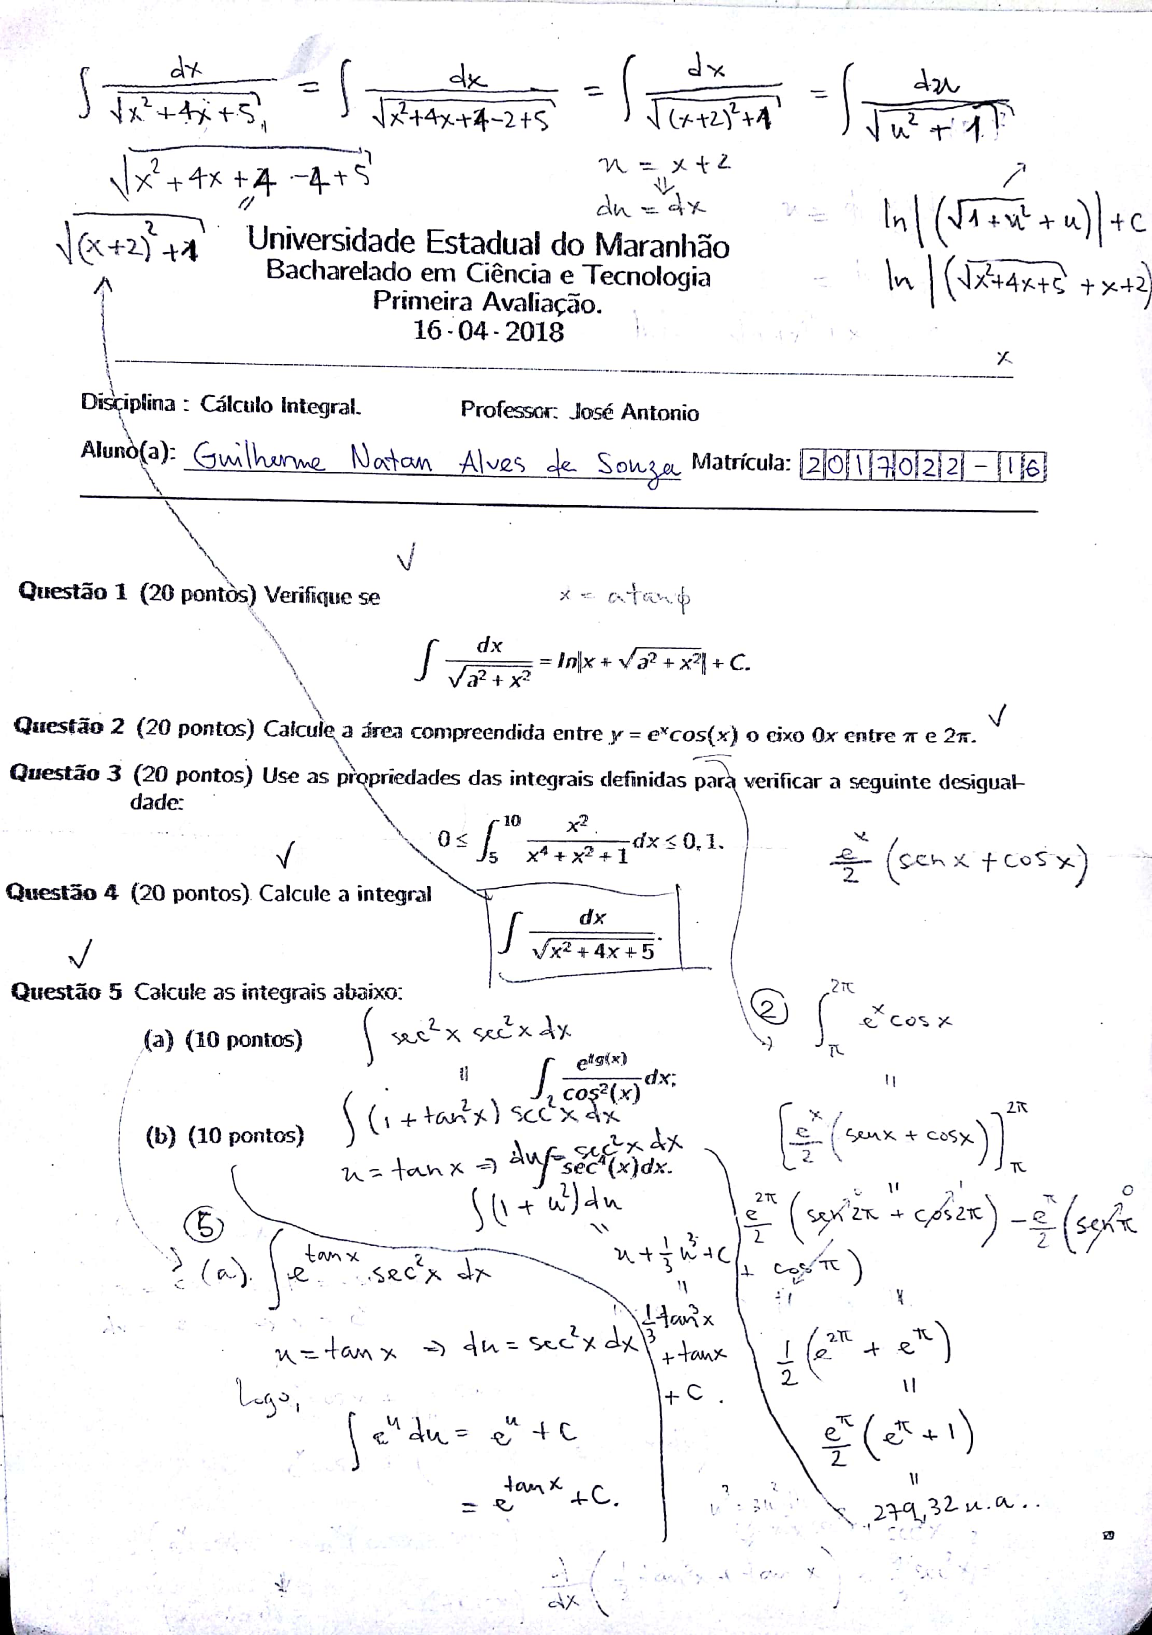 ∫ dx/√(x²+4x+5) = ∫ dx/√(x²+4x+4-2+5) = ∫ dx/√((x+2)²+1) = ∫ du/√(u²+1)
√(x²+4x+4-4+5)
u = x+2
⇓
du = dx
√((x+2)²+1)
ln|(√(1+u²)+u)|+c
ln|(√(x²+4x+5)+x+2)
Universidade Estadual do Maranhão
Bacharelado em Ciência e Tecnologia
Primeira Avaliação.
16-04-2018
x
Disciplina : Cálculo Integral. Professor: José Antonio
Aluno(a): Guilherme Natan Alves de Souza Matrícula: 2017022-16
✓
Questão 1 (20 pontos) Verifique se
x = a tanϕ
∫ dx/√(a² + x²) = ln|x + √(a² + x²)| + C.
Questão 2 (20 pontos) Calcule a área compreendida entre y = eˣcos(x) o eixo 0x entre π e 2π. ✓
Questão 3 (20 pontos) Use as propriedades das integrais definidas para verificar a seguinte desigual-
dade:
0 ≤ ∫₅¹⁰ x²/(x⁴ + x² + 1) dx ≤ 0,1.
eˣ/2 (senx + cosx)
✓
Questão 4 (20 pontos) Calcule a integral
∫ dx/√(x² + 4x + 5).
✓
Questão 5 Calcule as integrais abaixo:
(a) (10 pontos)
∫ e^tg(x)/cos²(x) dx;
(b) (10 pontos)
∫ sec⁴(x)dx.
∫ sec²x sec²x dx
=
∫ (1 + tan²x) sec²x dx
u = tanx ⇒ du = sec²x dx
∫ (1 + u²)du
=
u + 1/3 u³ + c
=
1/3 tan³x
+ tanx
+ C.
5
(a). ∫ e^tanx sec²x dx
u = tanx ⇒ du = sec²x dx
Logo,
∫ eᵘ du = eᵘ + C
= e^tanx + C.
2 ∫_π^2π eˣcosx
=
[eˣ/2 (senx + cosx)]_π^2π
e^2π/2 (sen2π + cos2π) - e^π/2 (senπ
+ cosπ)
1/2 (e^2π + e^π)
=
e^π/2 (e^π + 1)
=
279,32 u.a..